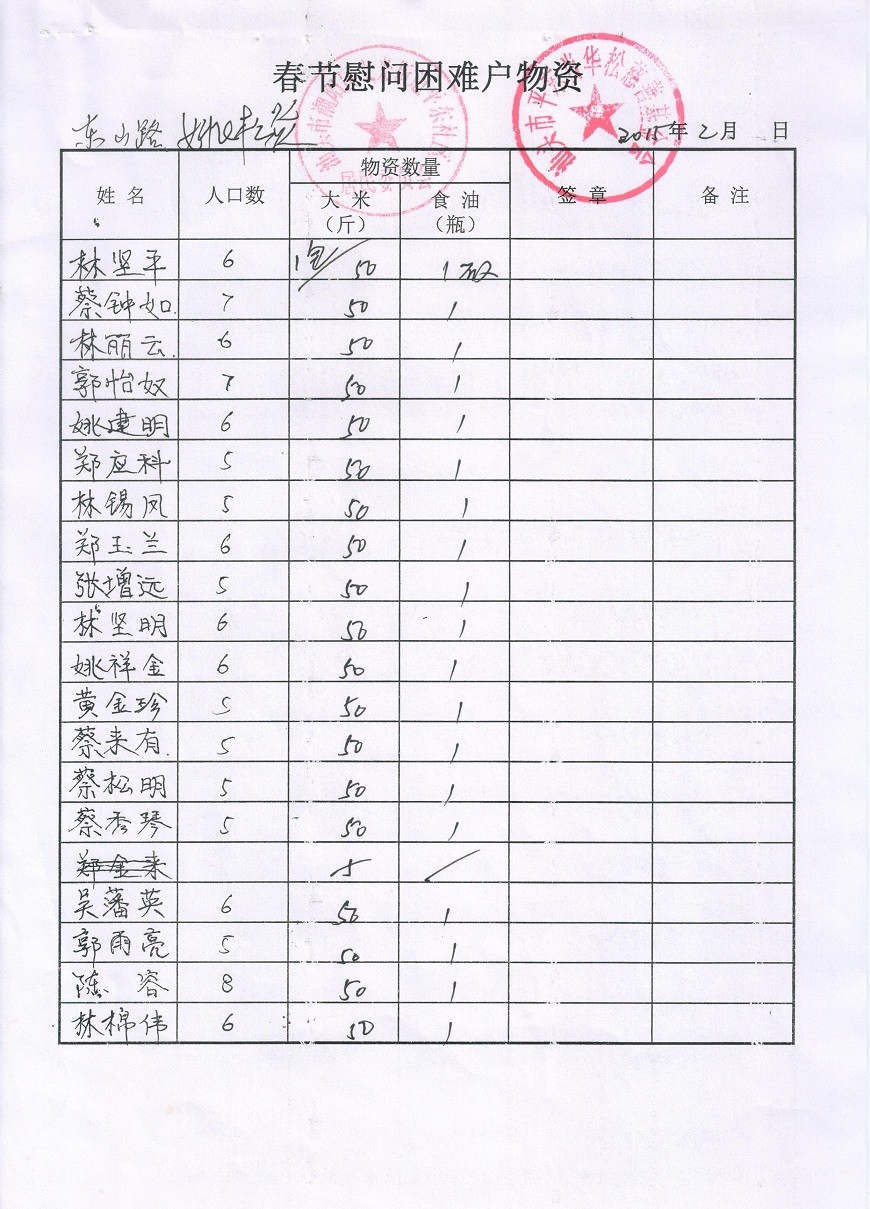 春节慰问困难户物资
东山路
2015年2月 日
姓 名 人口数 物资数量 签 章 备 注
大 米（斤） 食 油（瓶）
林坚平 6 1包/50 1
蔡钟如 7 50 1
林丽云 6 50 1
郭怡奴 7 50 1
姚建明 6 50 1
郑应科 5 50 1
林锡凤 5 50 1
郑玉兰 6 50 1
张增远 5 50 1
林坚明 6 50 1
姚祥金 6 50 1
黄金珍 5 50 1
蔡来有 5 50 1
蔡松明 5 50 1
蔡秀琴 5 50 1
郑金来
吴藩英 6 50 1
郭雨亮 5 50 1
陈 容 8 50 1
林棉伟 6 50 1